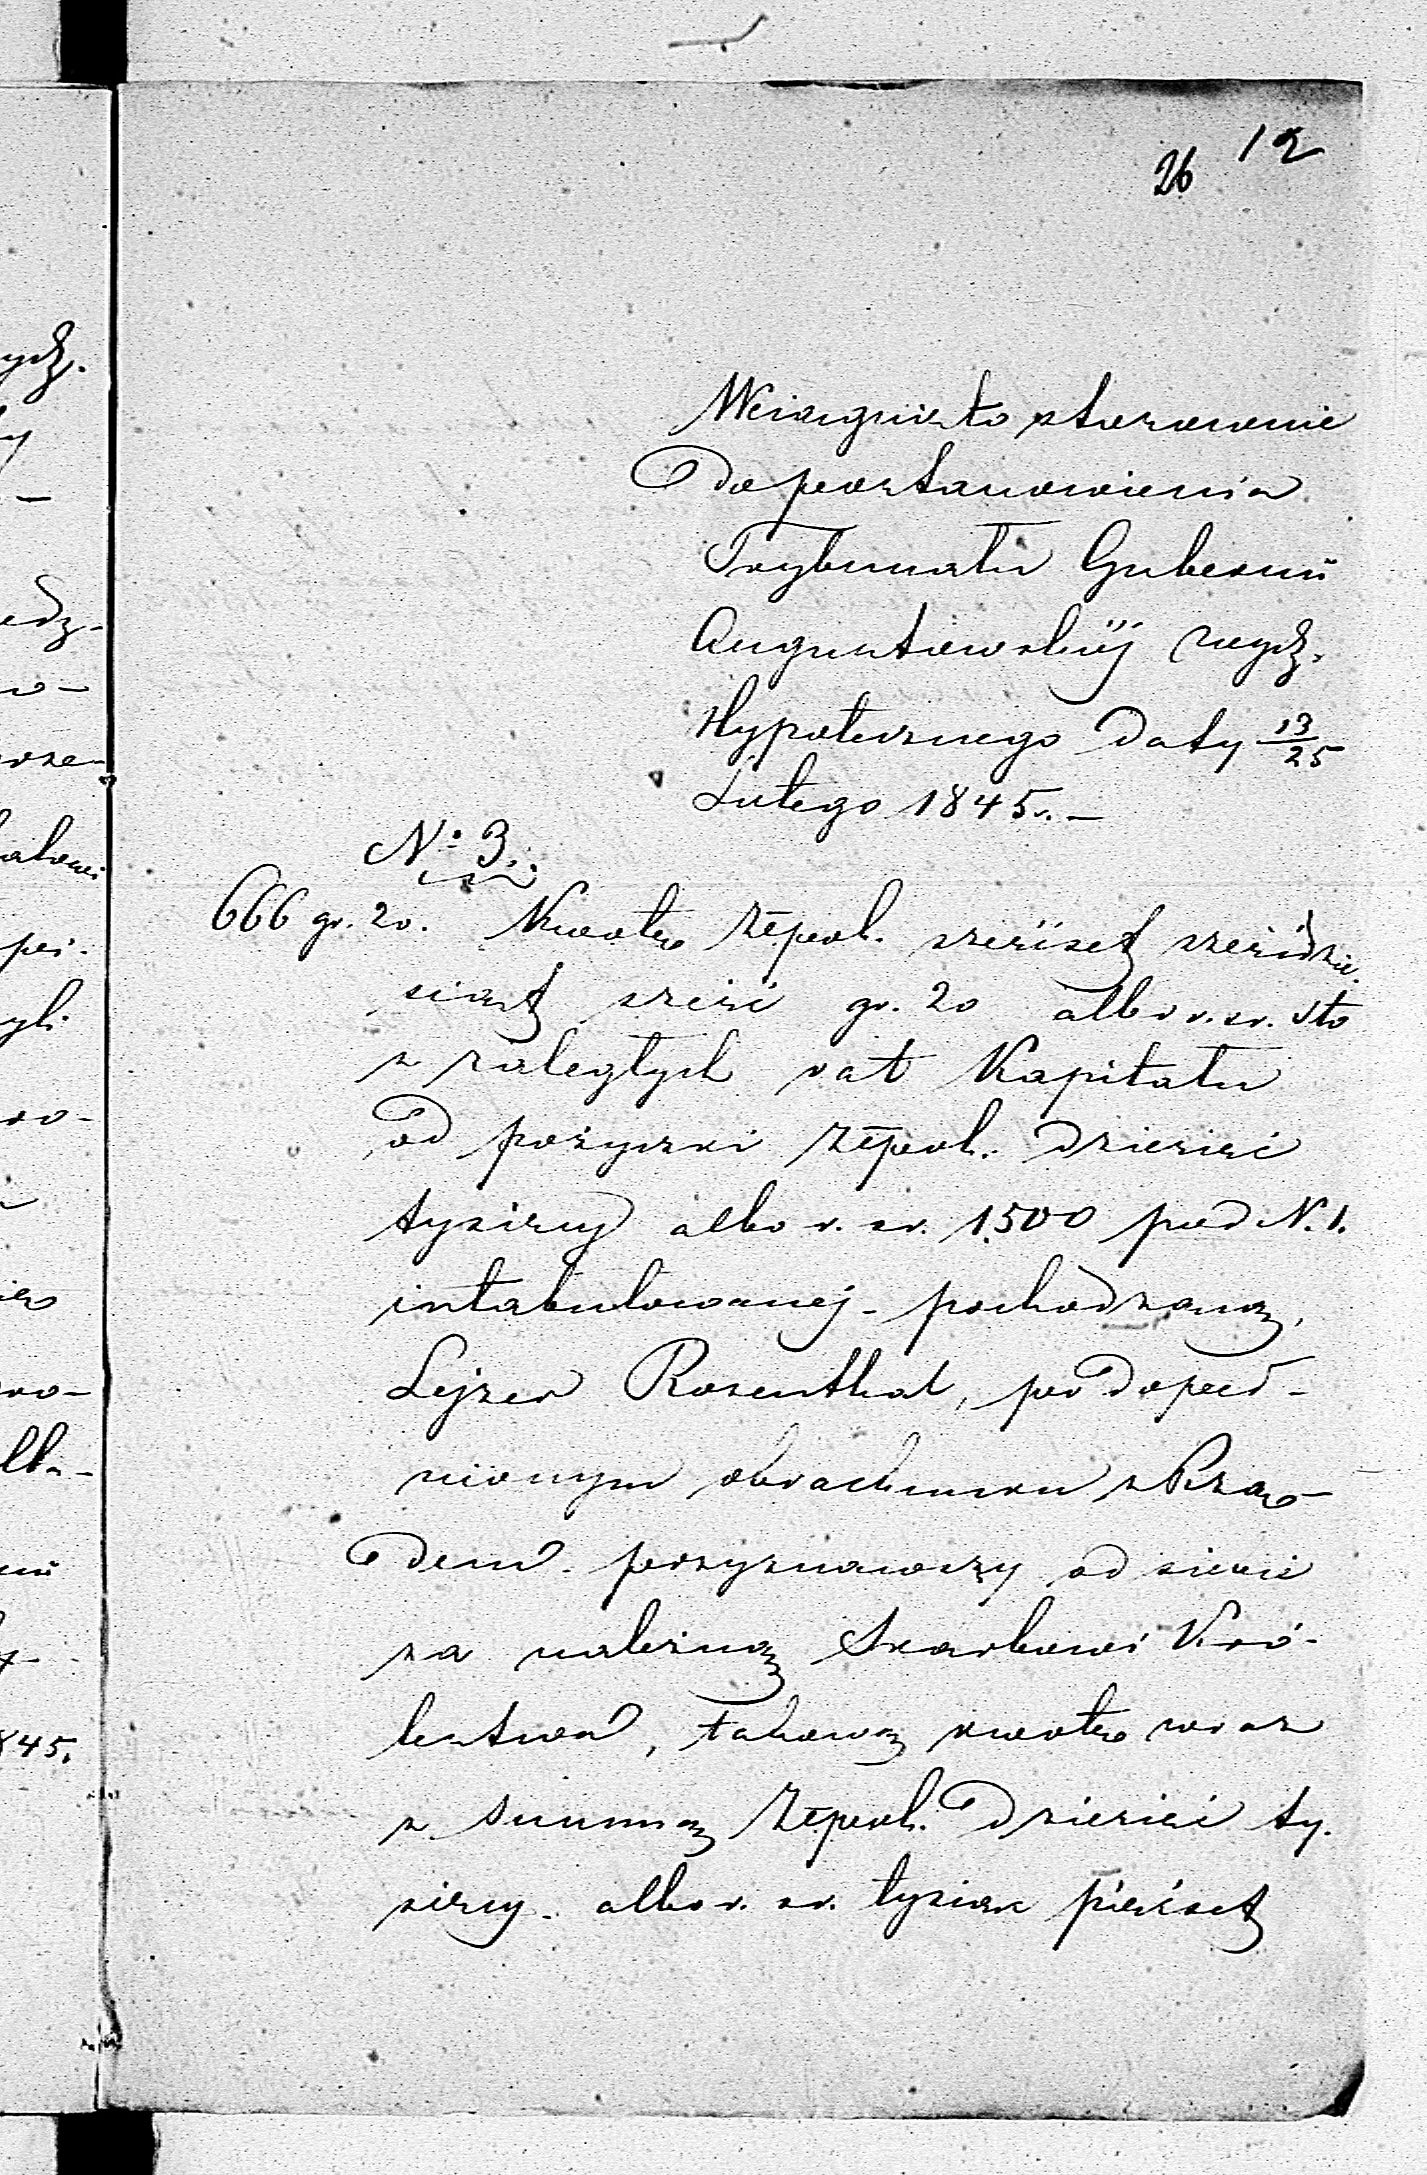 12
26
Wciągnięto stosownie
do postanowienia
Trybunału Gubernii
Augustowskiéj wydz.
Hypotecznego daty 13/25
Lutego 1845 r. —
No 3.
666 gr. 20. Kwotę złpol. sześćset sześćdzie
siąt sześć gr. 20 albo r. sr. sto
z zaległych rat Kapitału
od pożyczki złpol. dziesięć
tysięcy albo r. sr. 1500 pod N. 1.
intabulowanej - pochodzącą,
Lejzer Rosenthal, po dopeł-
nionym obrachunku z Rzą-
dem. przyznawszy od siebie
za należną Skarbowi Kró-
lestwa, takową kwotę wraz
z summą złpol. dziesięć ty.
sięcy. albo r. sr. tysiąc pięćset